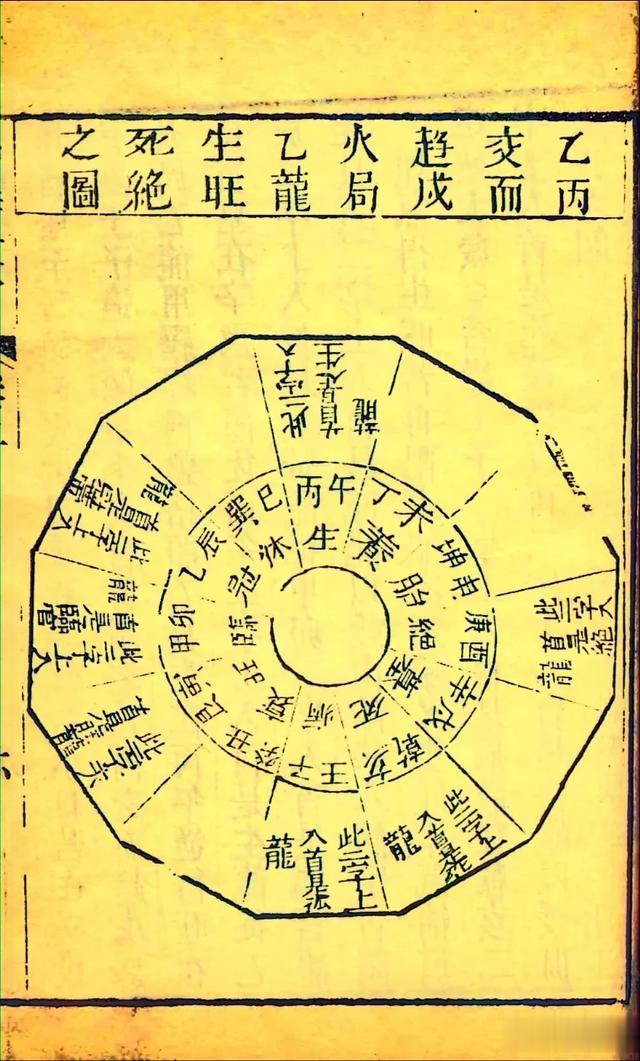 乙丙
交而
趨戌
火局
乙龍
生旺
死絕
之圖
此二字入
首是生
龍
此二字入
首是絕
龍
此二字上
入首是死
龍
此二字上
入首是
龍
此二字
首是
此二字上入
首是臨官
龍
此二字上入
首是
龍
丙午
丁未
坤申
庚酉
辛戌
乾亥
壬子
癸丑
艮寅
甲卯
乙辰
巽巳
生
養
胎
絕
墓
死
病
衰
旺
臨
冠
沐